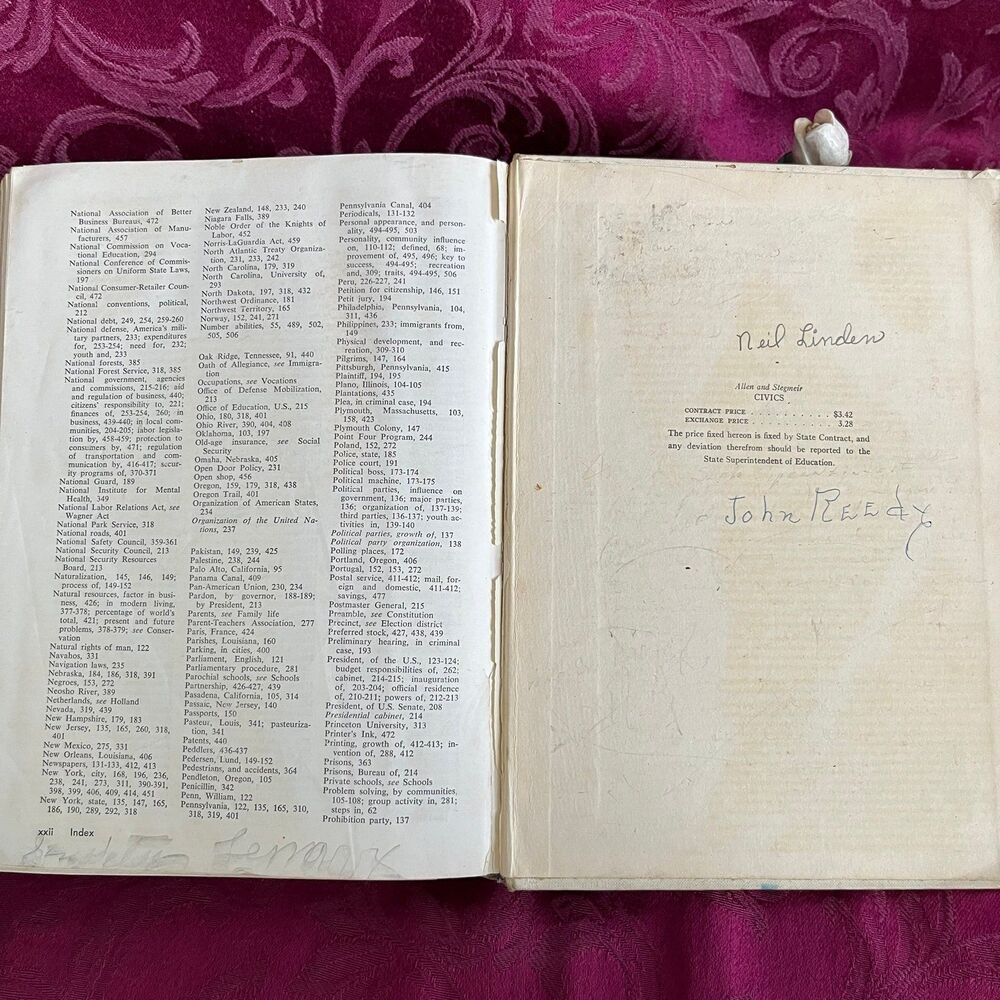 National Association of Better
Business Bureaus, 472
National Association of Manu-
facturers, 457
National Commission on Voca-
tional Education, 294
National Conference of Commis-
sioners on Uniform State Laws,
197
National Consumer-Retailer Coun-
cil, 472
National conventions, political,
212
National debt, 249, 254, 259-260
National defense, America's mili-
tary partners, 233; expenditures
for, 253-254; need for, 232;
youth and, 233
National forests, 385
National Forest Service, 318, 385
National government, agencies
and commissions, 215-216; aid
and regulation of business, 440;
citizens' responsibility to, 221;
finances of, 253-254, 260; in
business, 439-440; in local com-
munities, 204-205; labor legisla-
tion by, 458-459; protection to
consumers by, 471; regulation
of transportation and com-
munication by, 416-417; secur-
ity programs of, 370-371
National Guard, 189
National Institute for Mental
Health, 349
National Labor Relations Act, see
Wagner Act
National Park Service, 318
National roads, 401
National Safety Council, 359-361
National Security Council, 213
National Security Resources
Board, 213
Naturalization, 145, 146, 149;
process of, 149-152
Natural resources, factor in busi-
ness, 426; in modern living,
377-378; percentage of world's
total, 421; present and future
problems, 378-379; see Conser-
vation
Natural rights of man, 122
Navahos, 331
Navigation laws, 235
Nebraska, 184, 186, 318, 391
Negroes, 153, 272
Neosho River, 389
Netherlands, see Holland
Nevada, 319, 439
New Hampshire, 179, 183
New Jersey, 135, 165, 260, 318,
401
New Mexico, 275, 331
New Orleans, Louisiana, 406
Newspapers, 131-133, 412, 413
New York, city, 168, 196, 236,
238, 241, 273, 311, 390-391,
398, 399, 406, 409, 414, 451
New York, state, 135, 147, 165,
186, 190, 289, 292, 318
New Zealand, 148, 233, 240
Niagara Falls, 389
Noble Order of the Knights of
Labor, 452
Norris-LaGuardia Act, 459
North Atlantic Treaty Organiza-
tion, 231, 233, 242
North Carolina, 179, 319
North Carolina, University of,
293
North Dakota, 197, 318, 432
Northwest Ordinance, 181
Northwest Territory, 165
Norway, 152, 241, 271
Number abilities, 55, 489, 502,
505, 506
Oak Ridge, Tennessee, 91, 440
Oath of Allegiance, see Immigra-
tion
Occupations, see Vocations
Office of Defense Mobilization,
213
Office of Education, U.S., 215
Ohio, 180, 318, 401
Ohio River, 390, 404, 408
Oklahoma, 103, 197
Old-age insurance, see Social
Security
Omaha, Nebraska, 405
Open Door Policy, 231
Open shop, 456
Oregon, 159, 179, 318, 438
Oregon Trail, 401
Organization of American States,
234
Organization of the United Na-
tions, 237
Pakistan, 149, 239, 425
Palestine, 238, 244
Palo Alto, California, 95
Panama Canal, 409
Pan-American Union, 230, 234
Pardon, by governor, 188-189;
by President, 213
Parents, see Family life
Parent-Teachers Association, 277
Paris, France, 424
Parishes, Louisiana, 160
Parking, in cities, 400
Parliament, English, 121
Parliamentary procedure, 281
Parochial schools, see Schools
Partnership, 426-427, 439
Pasadena, California, 105, 314
Passaic, New Jersey, 140
Passports, 150
Pasteur, Louis, 341; pasteuriza-
tion, 341
Patents, 440
Peddlers, 436-437
Pedersen, Lund, 149-152
Pedestrians, and accidents, 364
Pendleton, Oregon, 105
Penicillin, 342
Penn, William, 122
Pennsylvania, 122, 135, 165, 310,
318, 319, 401
Pennsylvania Canal, 404
Periodicals, 131-132
Personal appearance, and person-
ality, 494-495, 503
Personality, community influence
on, 110-112; defined, 68; im-
provement of, 495, 496; key to
success, 494-495; recreation
and, 309; traits, 494-495, 506
Peru, 226-227, 241
Petition for citizenship, 146, 151
Petit jury, 194
Philadelphia, Pennsylvania, 104,
311, 436
Philippines, 233; immigrants from,
149
Physical development, and rec-
reation, 309-310
Pilgrims, 147, 164
Pittsburgh, Pennsylvania, 415
Plaintiff, 194, 195
Plano, Illinois, 104-105
Plantations, 435
Plea, in criminal case, 194
Plymouth, Massachusetts, 103,
158, 423
Plymouth Colony, 147
Point Four Program, 244
Poland, 152, 272
Police, state, 185
Police court, 191
Political boss, 173-174
Political machine, 173-175
Political parties, influence on
government, 136; major parties,
136; organization of, 137-139;
third parties, 136-137; youth ac-
tivities in, 139-140
Political parties, growth of, 137
Political party organization, 138
Polling places, 172
Portland, Oregon, 406
Portugal, 152, 153, 272
Postal service, 411-412; mail, for-
eign and domestic, 411-412;
savings, 477
Postmaster General, 215
Preamble, see Constitution
Precinct, see Election district
Preferred stock, 427, 438, 439
Preliminary hearing, in criminal
case, 193
President, of the U.S., 123-124;
budget responsibilities of, 262;
cabinet, 214-215; inauguration
of, 203-204; official residence
of, 210-211; powers of, 212-213
President, of U.S. Senate, 208
Presidential cabinet, 214
Princeton University, 313
Printer's Ink, 472
Printing, growth of, 412-413; in-
vention of, 288, 412
Prisons, 363
Prisons, Bureau of, 214
Private schools, see Schools
Problem solving, by communities,
105-108; group activity in, 281;
steps in, 62
Prohibition party, 137
xxii Index
Neil Linden
Allen and Stegmeir
CIVICS
CONTRACT PRICE . . . . . . . . . . $3.42
EXCHANGE PRICE . . . . . . . . . . 3.28
The price fixed hereon is fixed by State Contract, and
any deviation therefrom should be reported to the
State Superintendent of Education.
John REEdy